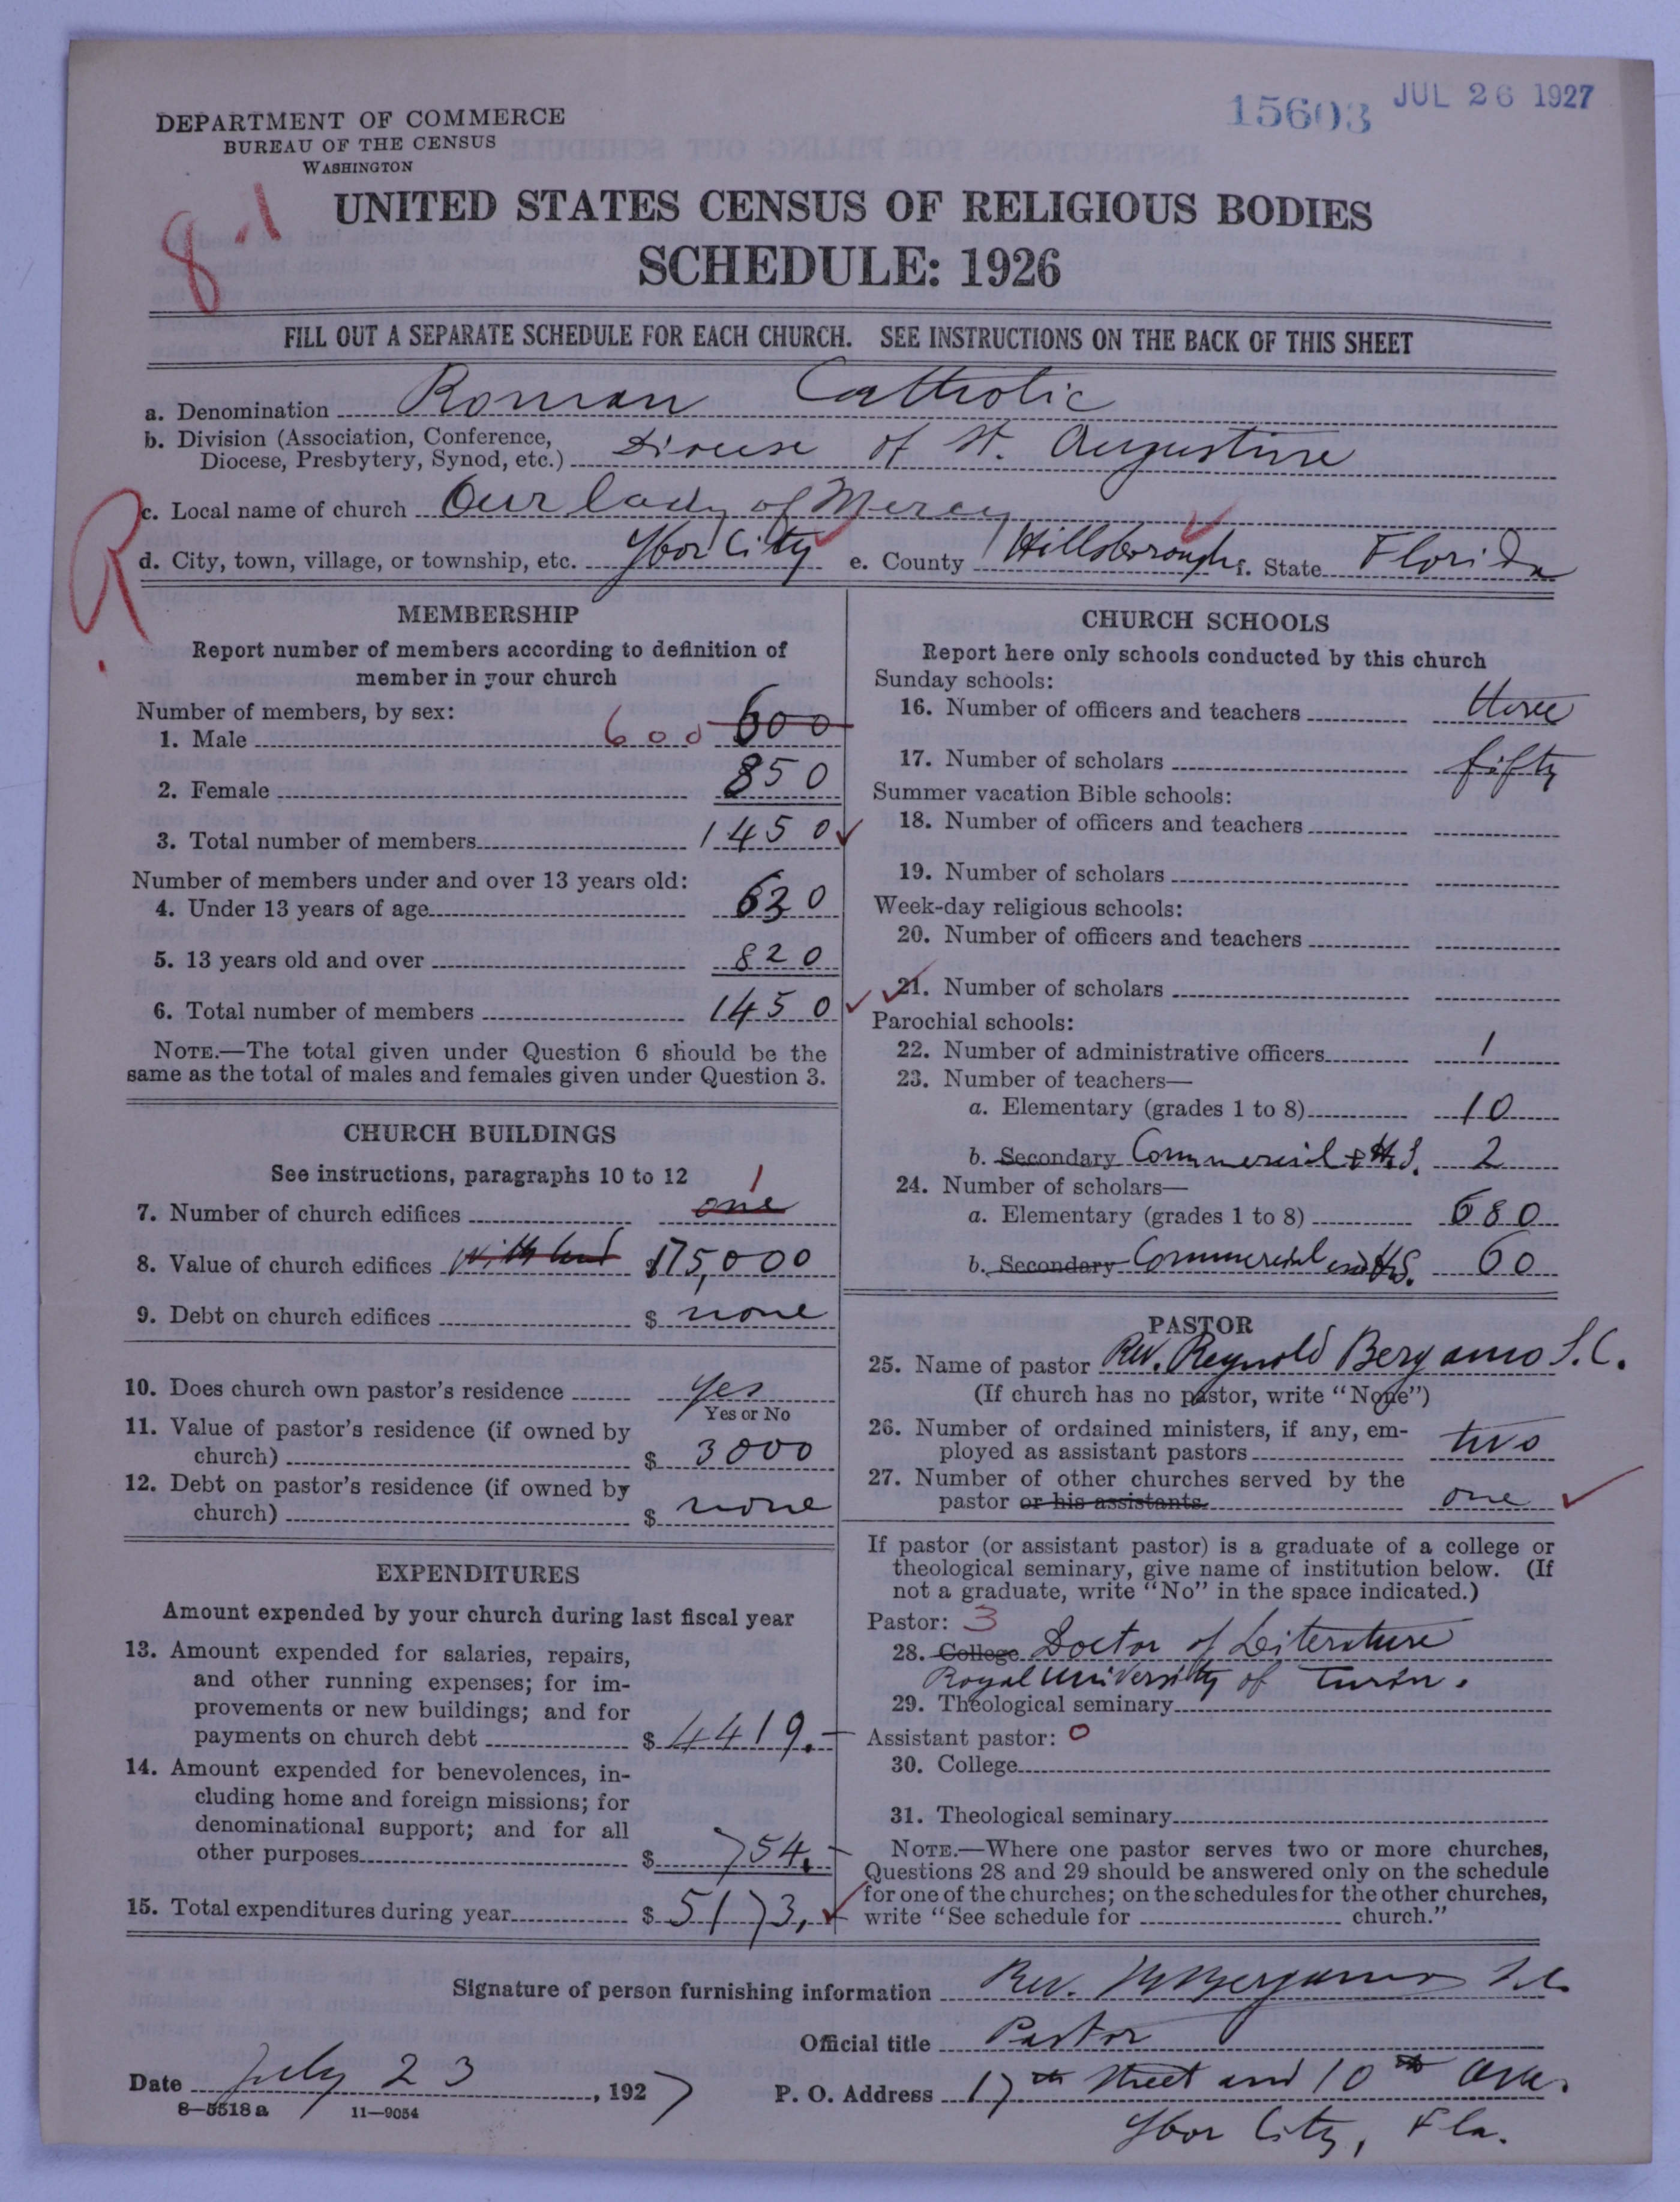 15603 JUL 26 1927
DEPARTMENT OF COMMERCE
BUREAU OF THE CENSUS
WASHINGTON
8-1
UNITED STATES CENSUS OF RELIGIOUS BODIES
SCHEDULE: 1926
FILL OUT A SEPARATE SCHEDULE FOR EACH CHURCH. SEE INSTRUCTIONS ON THE BACK OF THIS SHEET
a. Denomination Roman Catholic
b. Division (Association, Conference,
Diocese, Presbytery, Synod, etc.) Diocese of St. Augustine
c. Local name of church Our Lady of Mercy
R.
d. City, town, village, or township, etc. Ybor City e. County Hillsborough f. State Florida
MEMBERSHIP
Report number of members according to definition of
member in your church
Number of members, by sex:
1. Male 600 600
2. Female 850
3. Total number of members 1450
Number of members under and over 13 years old:
4. Under 13 years of age 630
5. 13 years old and over 820
6. Total number of members 1450
NOTE.—The total given under Question 6 should be the
same as the total of males and females given under Question 3.
CHURCH BUILDINGS
See instructions, paragraphs 10 to 12
7. Number of church edifices one 1
8. Value of church edifices with land $75,000
9. Debt on church edifices $ none
10. Does church own pastor's residence yes
Yes or No
11. Value of pastor's residence (if owned by
church) $ 3000
12. Debt on pastor's residence (if owned by
church) $ none
EXPENDITURES
Amount expended by your church during last fiscal year
13. Amount expended for salaries, repairs,
and other running expenses; for im-
provements or new buildings; and for
payments on church debt $ 4419.-
14. Amount expended for benevolences, in-
cluding home and foreign missions; for
denominational support; and for all
other purposes $ 754.-
15. Total expenditures during year $ 5173.-
CHURCH SCHOOLS
Report here only schools conducted by this church
Sunday schools:
16. Number of officers and teachers three
17. Number of scholars fifty
Summer vacation Bible schools:
18. Number of officers and teachers
19. Number of scholars
Week-day religious schools:
20. Number of officers and teachers
21. Number of scholars
Parochial schools:
22. Number of administrative officers 1
23. Number of teachers—
a. Elementary (grades 1 to 8) 10
b. Secondary Commercial & H.S. 2
24. Number of scholars—
a. Elementary (grades 1 to 8) 680
b. Secondary Commercial and H.S. 60
PASTOR
25. Name of pastor Rev. Reynold Bergamo S.C.
(If church has no pastor, write "None")
26. Number of ordained ministers, if any, em-
ployed as assistant pastors two
27. Number of other churches served by the
pastor or his assistants one
If pastor (or assistant pastor) is a graduate of a college or
theological seminary, give name of institution below. (If
not a graduate, write "No" in the space indicated.)
Pastor: 3
28. College Doctor of Literature
Royal University of Turin.
29. Theological seminary
Assistant pastor: 0
30. College
31. Theological seminary
NOTE.—Where one pastor serves two or more churches,
Questions 28 and 29 should be answered only on the schedule
for one of the churches; on the schedules for the other churches,
write "See schedule for church."
Signature of person furnishing information Rev. Bergamo S.C.
Official title Pastor
Date July 23, 1927 P. O. Address 17th Street and 10th Ave.
8-5518 a 11-9054
Ybor City, Fla.